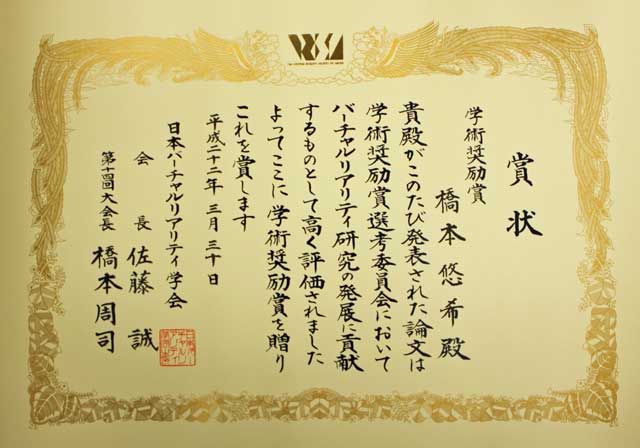 VRSJ
THE VIRTUAL REALITY SOCIETY OF JAPAN
賞状
学術奨励賞
橋本悠希殿
貴殿がこのたび発表された論文は
学術奨励賞選考委員会において
バーチャルリアリティ研究の発展に貢献
するものとして高く評価されました
よってここに学術奨励賞を贈り
これを賞します
平成二十二年三月三十日
日本バーチャルリアリティ学会
会長 佐藤誠
第十四回大会長 橋本周司